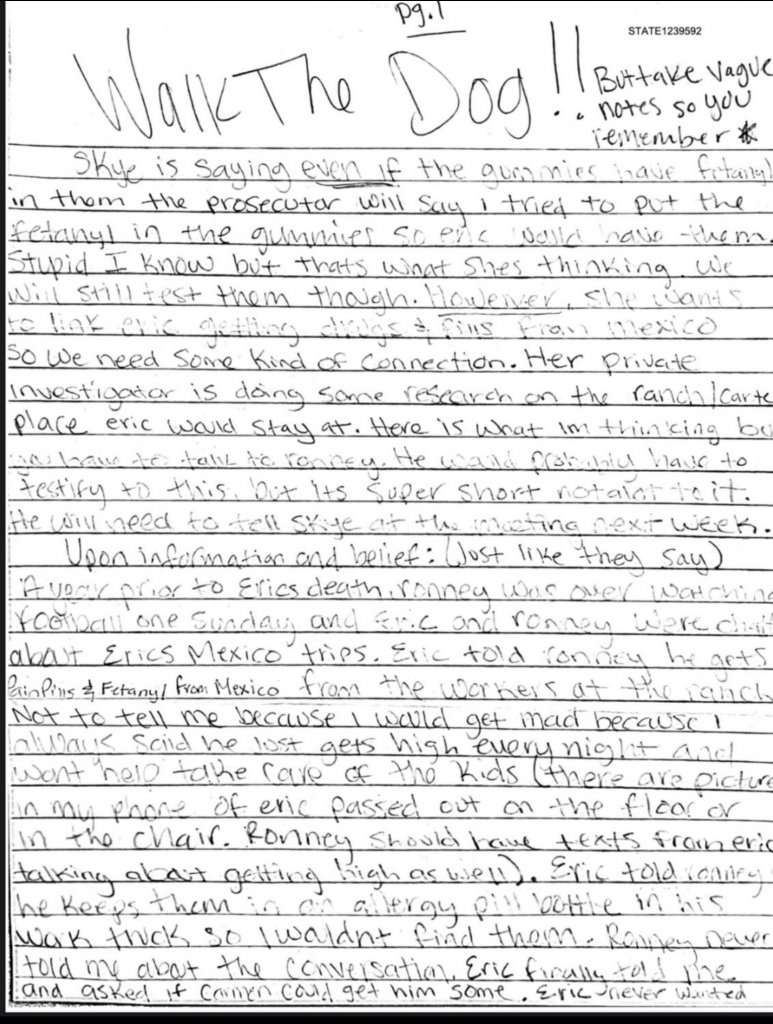 pg.1
STATE1239592
Walk The Dog!!
But take vague
notes so you
remember *
Skye is saying even if the gummies have fetanyl
in them the prosecutor will say I tried to put the
fetanyl in the gummies so eric would have them.
Stupid I know but thats what shes thinking. We
will still test them though. However, she wants
to link eric getting drugs & pills from mexico
so we need some kind of connection. Her private
investigator is doing some research on the ranch/carte
place eric would stay at. Here is what im thinking bu
you have to talk to ronney. He would probably have to
testify to this, but its super short not alot to it.
He will need to tell Skye at the meeting next week.
Upon information and belief: (Just like they say)
A year prior to Erics death, ronney was over watching
football one Sunday and Eric and ronney were chatt
about Erics Mexico trips. Eric told ronney he gets
Pain Pills & Fetanyl from Mexico from the workers at the ranch
Not to tell me because I would get mad because I
always said he just gets high every night and
wont help take care of the kids (there are picture
in my phone of eric passed out on the floor or
in the chair. Ronney should have texts from eric
talking about getting high as well). Eric told ronney
he keeps them in an allergy pill bottle in his
work truck so I waldnt find them. Ronney never
told me about the conversation. Eric finally told me
and asked if Carmen could get him some. Eric never wanted